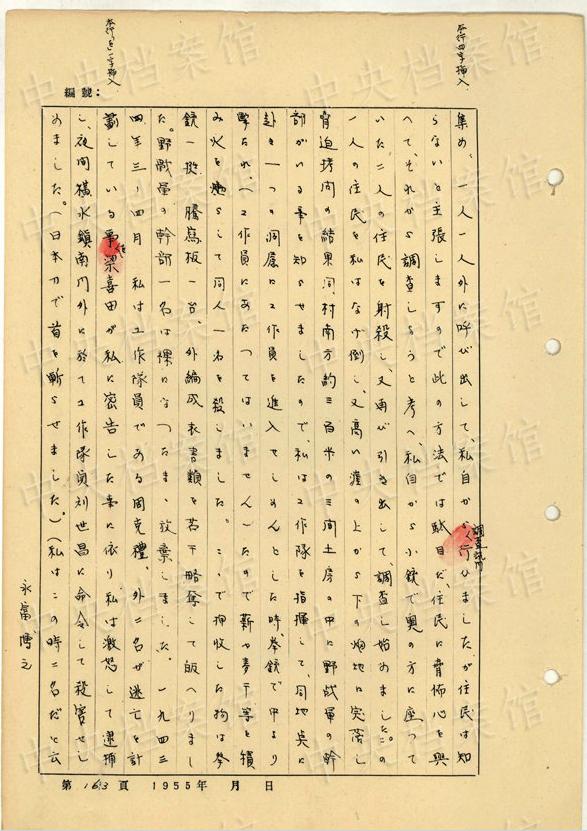 本行四字挿入
本行一字挿入
編號:
集め、一人一人外に呼び出して、私自から行ひましたが住民は知
調査訊問
らないと主張しますので此の方法では駄目だ、住民に脅怖心を興
へて、それから調査しようと考へ、私自から小銃で奥の方に座って
いた二人の住民を射殺し、又再び引き出して、調査し始めました。この
一人の住民を私はなげ倒し、又高い崖の上から下の畑地に突落し
脅迫拷問の結果同村南方約三百米の三間土房の中に野戦軍の幹
部がいる事を知らせましたので、私は工作隊を指揮して、同地点に
赴き一つの洞窟に工作員を進入せしめんとした時、拳銃で中より
撃たれ、(工作員にあたつてはいません)たので薪や麦干等を積
み火を燃らして同人一名を殺しました。ここで押収した物は拳
銃一挺 謄寫板一台、外編成表書類を若干略奪して皈へりまし
た。野戰軍の幹部一名は裸になつたまゝ放棄しました。一九四三
四年三・四月 私は工作隊員である周克禮、外二名が逃亡を計
劃している事梁喜田が私に密告した事に依り私は激怒して逮捕
し、夜間橫水鎮南門外に於て工作隊員刘世昌に命令して殺害せし
めました。(日本刀で首を斬らせました。)(私はこの時二名だと云
永富博之
第163頁 1955年 月 日
中央档案馆